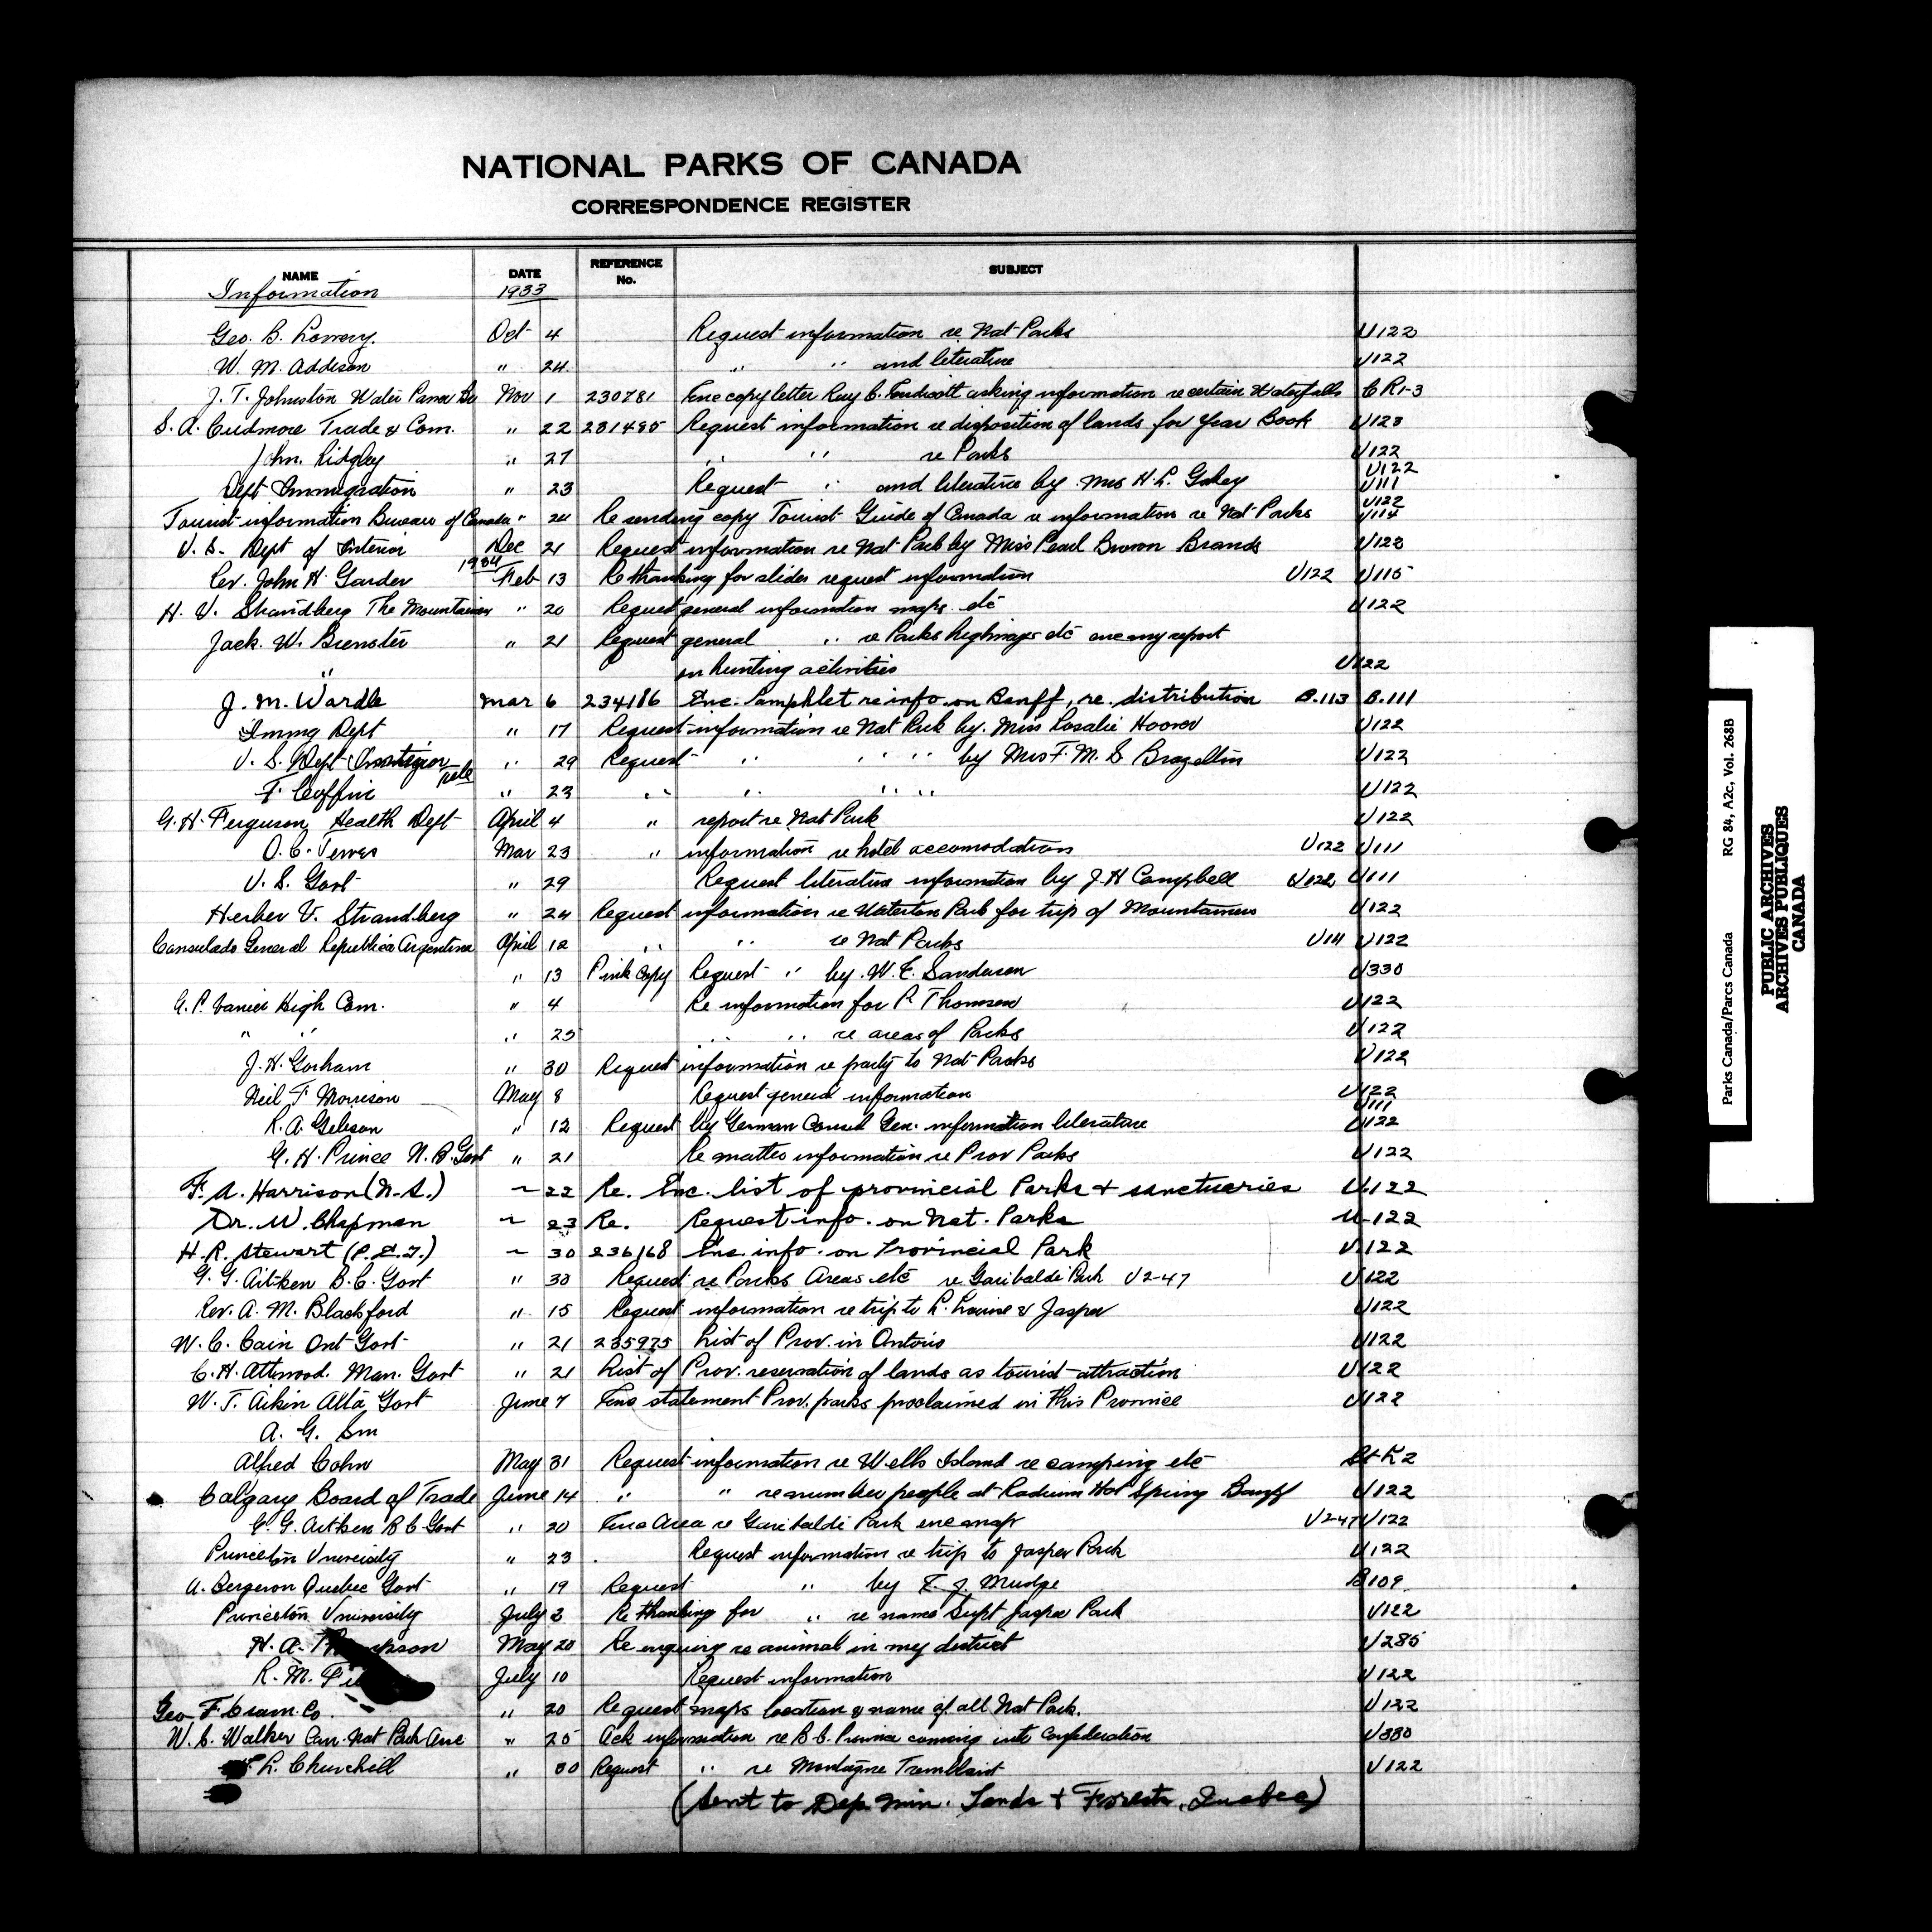 NATIONAL PARKS OF CANADA
CORRESPONDENCE REGISTER
NAME DATE REFERENCE No. SUBJECT
Information 1933
Geo. B. Lowery. Oct 4 Request information re Nat Parks U122
W. M. Addison " 24 " " and literature U122
J. T. Johnston Water Power Nov 1 230781 Enc copy letter Ray C. Endicott asking information re certain Waterfalls C R1-3
S. A. Cudmore Trade & Com. " 22 231485 Request information re disposition of lands for Year Book U123
John Ridgley " 27 " " re Parks U122
Dept Immigration " 23 Request " and literature by Mrs H. L. U122 U111
Tourist information Bureau of Canada " 24 Re sending copy Tourist Guide of Canada re information re Nat Parks U122 U114
U. S. Dept of Interior Dec 21 Request information re Nat Park by Miss Pearl Brown Brands U122
1934
Rev. John H. Garder Feb 13 Re thanking for slides request information U122 U115
H. V. Strandberg The Mountaineers " 20 Request general information maps etc U122
Jack. W. Brewster " 21 Request general " re Parks highways etc enc my report
" on hunting activities U122
J. M. Wardle Mar 6 234186 Enc. Pamphlet re info. on Banff, re. distribution B.113 B.111
Immg Dept " 17 Request information re Nat Park by. Miss Rosalie Hoover U122
U. S. Dept " 29 Request " " " by Mrs F. M. S. U122
F. Coffin " 23 " " " " U122
G. H. Ferguson Health Dept April 4 " report re Nat Park U122
O. C. Mar 23 " information re hotel accomodation U122 U111
U. S. Govt " 29 Request literature information by J. H Campbell U122 U111
Herber V. Strandberg " 24 Request information re Waterton Park for trip of Mountaineers U122
Consulado General Republica Argentina April 12 " " re Nat Parks U111 U122
" 13 Pink Copy Request " by W. E. Sanderson U330
G. P. Vanier High Com. " 4 Re information for P. Thomson U122
" " " 25 " " re areas of Parks U122
J. H. Gorham " 30 Request information re party to Nat Parks U122
Neil F Morrison May 8 Request general information U122
R. A. Gibson " 12 Request by German Consul Gen. information literature U111 U122
G. H. Prince N. B. Govt " 21 Re matter information re Prov Parks U122
F. A. Harrison (N. S.) " 22 Re. Enc. list of provincial Parks + sanctuaries U.122
Dr. W. Chapman " 23 Re. Request info. on Nat. Parks U-122
H. R. Stewart (P. E. I.) " 30 236168 Enc. info. on Provincial Park U.122
G. G. Aitken B. C. Govt " 30 Request re Parks Areas etc re Garibaldi Park U2-47 U122
Rev. A. M. Blackford " 15 Request information re trip to L. Louise & Jasper U122
W. C. Cain Ont Govt " 21 235975 List of Prov. in Ontario U122
C. H. Attwood. Man. Govt " 21 List of Prov. reservation of lands as tourist attraction U122
W. T. Aikin Alta Govt June 7 Enc statement Prov. parks proclaimed in this Province U122
A. G. Sm
Alfred Cohn May 31 Request information re Wells Island re camping etc St-L2
Calgary Board of Trade June 14 " " re number people at Radium Hot Spring Banff U122
G. G. Aitken B C Govt " 20 Enc Area re Garibaldi Park enc map U2-47 U122
Princeton University " 23 Request information re trip to Jasper Park U122
A. Bergeron Quebec Govt " 19 Request " by F. J. Mudge B109
Princeton University July 2 Re thanking for " re name Supt Jasper Park U122
H. A. May 20 Re enquiry re animal in my district U285
R. M. July 10 Request information U122
Geo F Cram. Co. " 20 Request maps location & name of all Nat Park. U122
W. C. Walker Can. Nat Park " 25 Ack information re B C. Province coming into Confederation U330
L. Churchill " 30 Request " re Montagne Tremblant U122
(Sent to Dep. Min. Lands + Forests, Quebec)
Parks Canada/Parcs Canada RG 84, A2c, Vol. 268B
PUBLIC ARCHIVES
ARCHIVES PUBLIQUES
CANADA